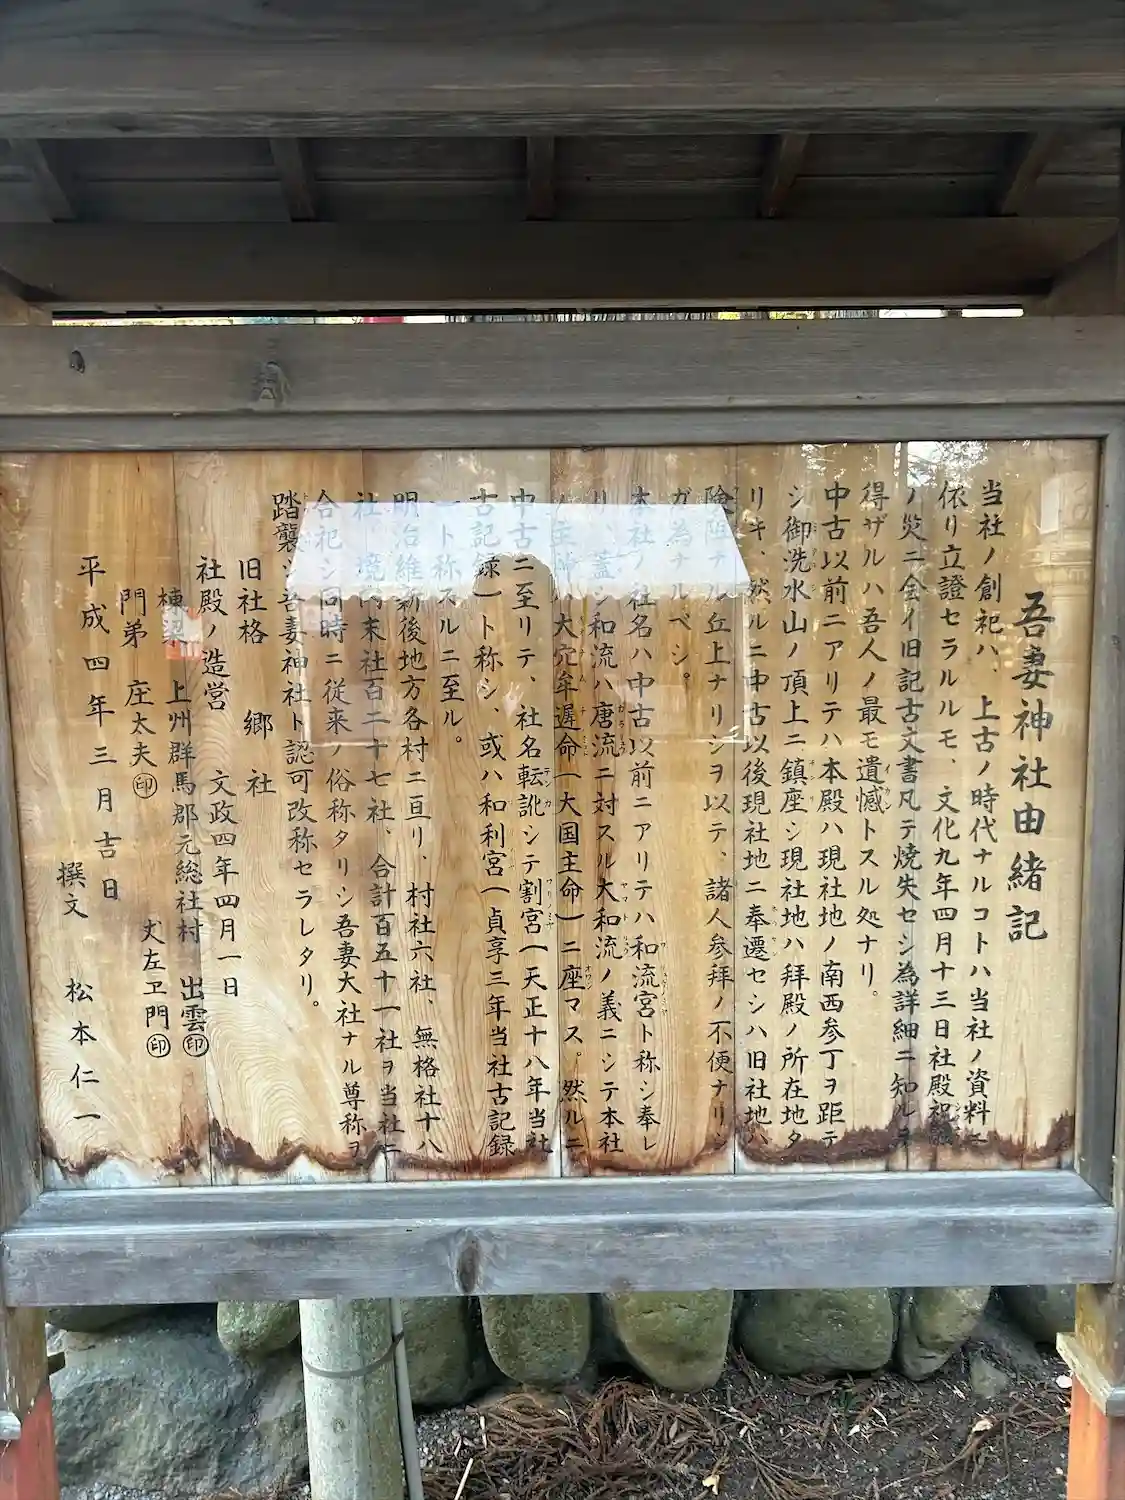 吾妻神社由緒記
当社ノ創祀ハ、上古ノ時代ナルコトハ当社ノ資料ニ
依リ立證セラルルモ、文化九年四月十三日社殿祝融
ノ災ニ会イ旧記古文書凡テ焼失セシ為詳細ニ知ルヲ
得ザルハ吾人ノ最モ遺憾トスル処ナリ。
中古以前ニアリテハ本殿ハ現社地ノ南西参丁ヲ距テ
シ御洗水山ノ頂上ニ鎮座シ現社地ハ拝殿ノ所在地タ
リキ、然ルニ中古以後現社地ニ奉遷セシハ旧社地ハ
険阻ナル丘上ナリシヲ以テ、諸人参拜ノ不便ナリシ
ガ為ナルベシ。
本社ノ社名ハ中古以前ニアリテハ和流宮ト称シ奉レ
リ、蓋シ和流ハ唐流ニ対スル大和流ノ義ニシテ本社
ノ主神ハ大穴牟遅命(大国主命)ニ座マス。然ルニ
中古ニ至リテ、社名転訛シテ割宮(天正十八年当社
古記録)ト称シ、或ハ和利宮(貞享三年当社古記録
ート称スルニ至ル。
明治維新後地方各村ニ亘リ、村社六社、無格社十八
社、境内末社百二十七社、合計百五十一社ヲ当社ニ
合祀シ同時ニ従来ノ俗称タリシ吾妻大社ナル尊称ヲ
踏襲シ吾妻神社ト認可改称セラレタリ。
旧社格 郷社
社殿ノ造営 文政四年四月一日
棟梁 上州群馬郡元総社村 出雲㊞
門弟 庄太夫㊞ 丈左ヱ門㊞
平成四年三月吉日
撰文 松本仁一